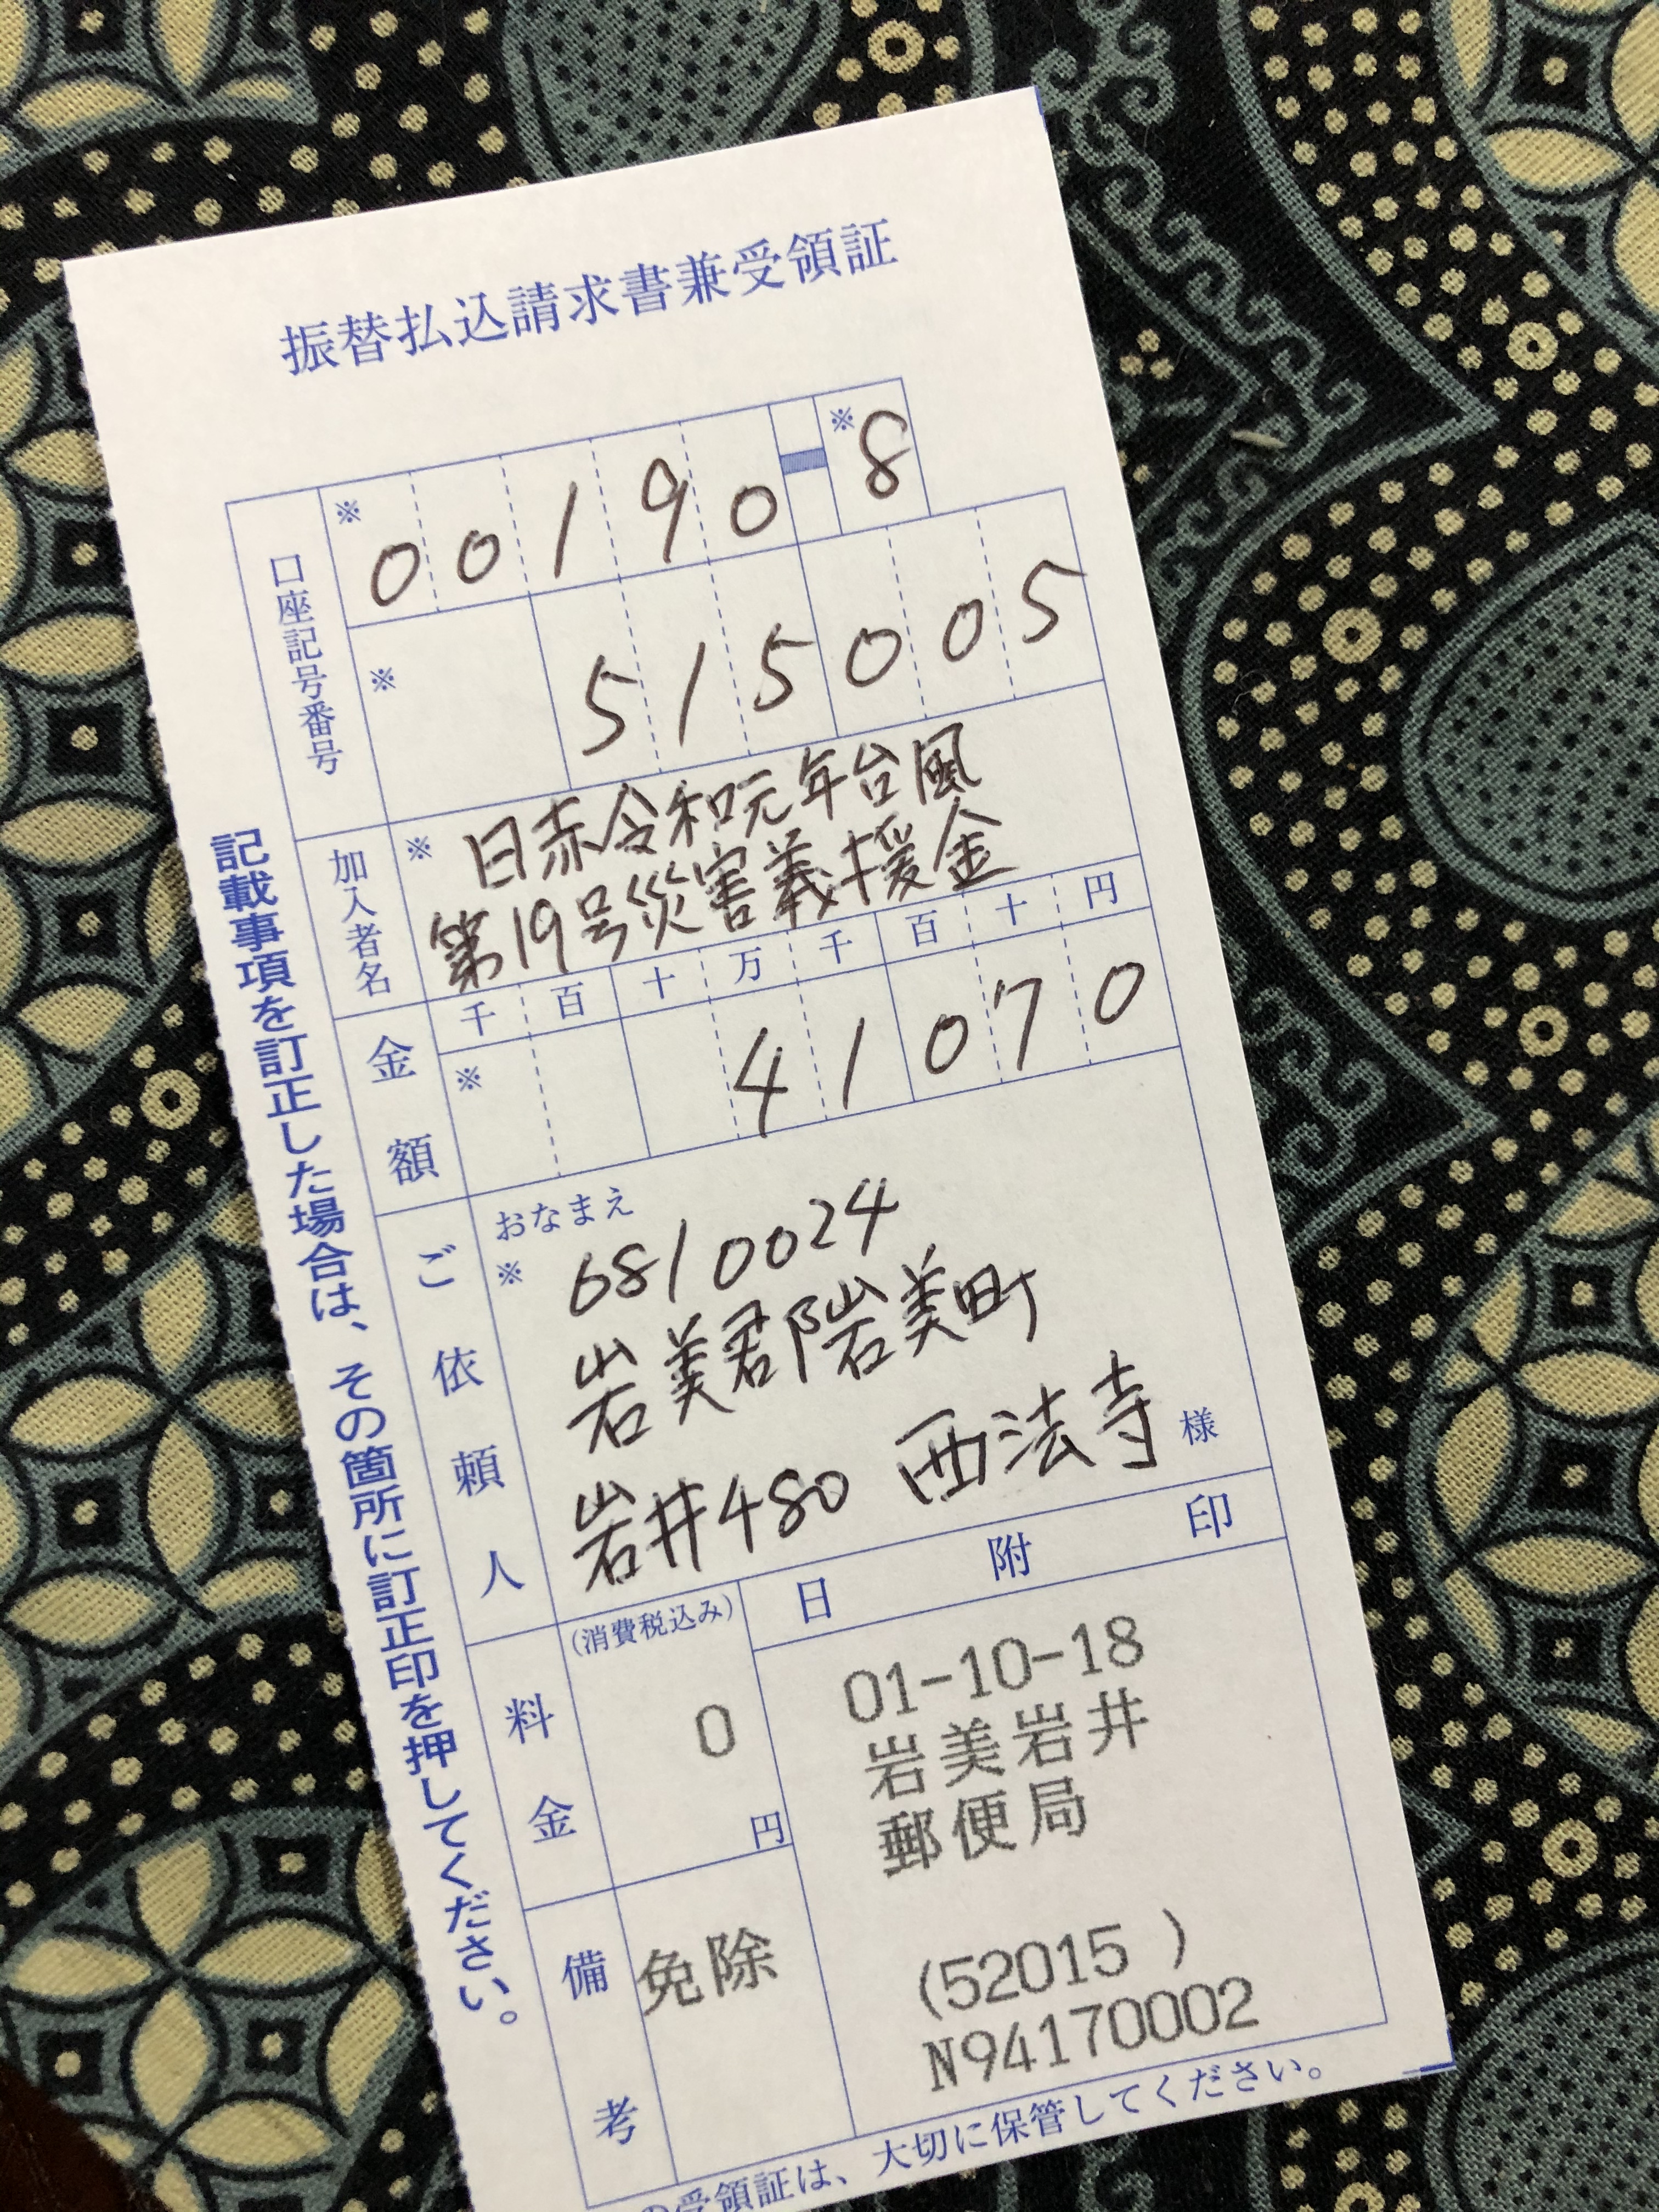 振替払込請求書兼受領証
口座記号番号
※ 00190 - ※ 8
※ 515005
加入者名
※ 日赤令和元年台風
第19号災害義援金
金額
千 百 十 万 千 百 十 円
※ 41070
ご依頼人
おなまえ
※ 6810024
岩美郡岩美町
岩井480 西法寺 様
料金
(消費税込み)
0
円
日附印
01-10-18
岩美岩井
郵便局
(52015 )
N94170002
備考
免除
記載事項を訂正した場合は、その箇所に訂正印を押してください。
の受領証は、大切に保管してください。